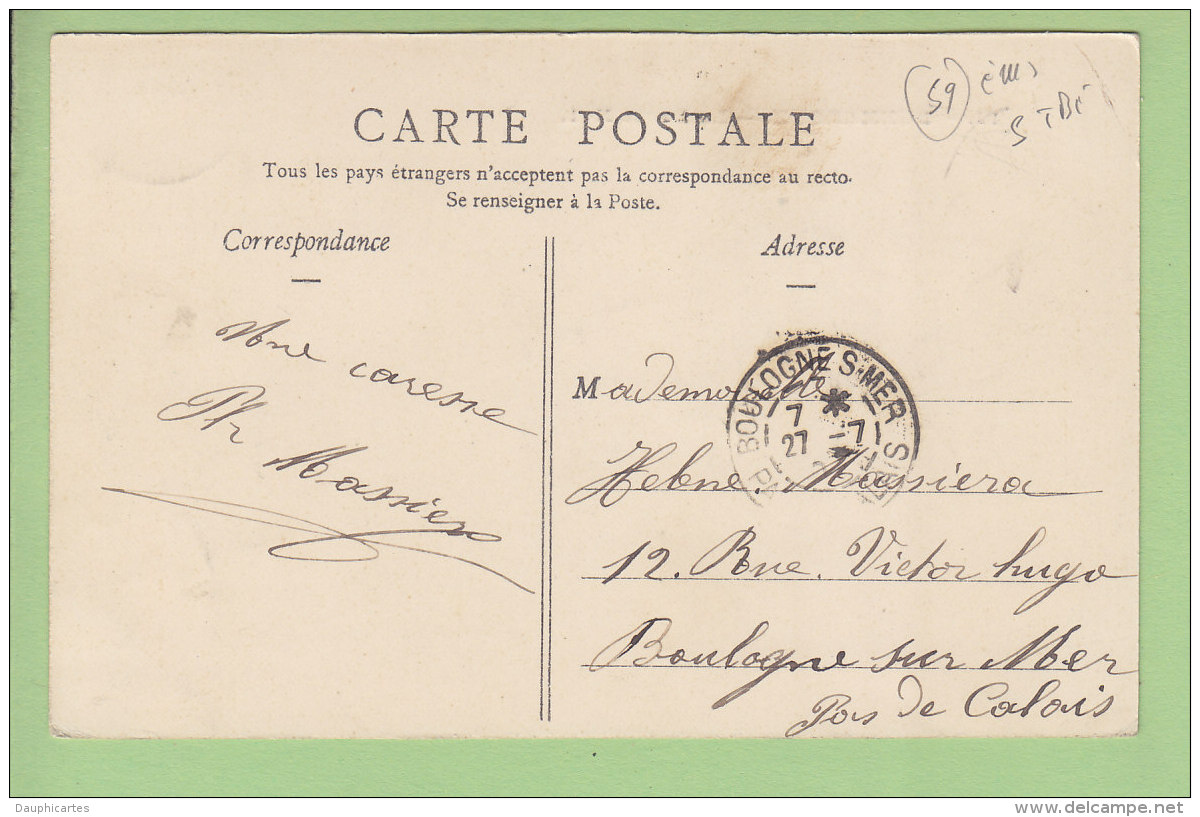 59
CARTE POSTALE
Tous les pays étrangers n'acceptent pas la correspondance au recto.
Se renseigner à la Poste.
Correspondance
Une caresse
Ph Massiera
Adresse
Mademoiselle
Helene Massiera
12. Rue. Victor hugo
Boulogne sur Mer
Pas de Calais
BOULOGNE S-MER
7 *
27 -7
Dauphicartes
www.delcampe.net